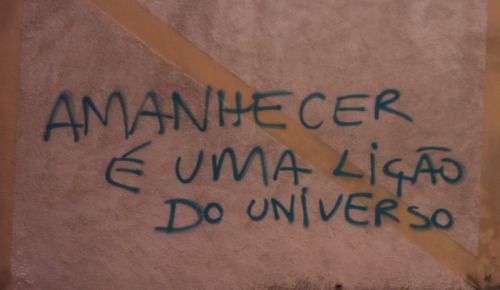 AMANHECER
É UMA LiÇÃO
DO UNiVERSO